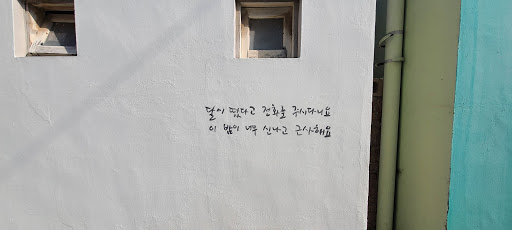 달이 떴다고 전화를 주시다니요
이 밤이 너무 신나고 근사해요